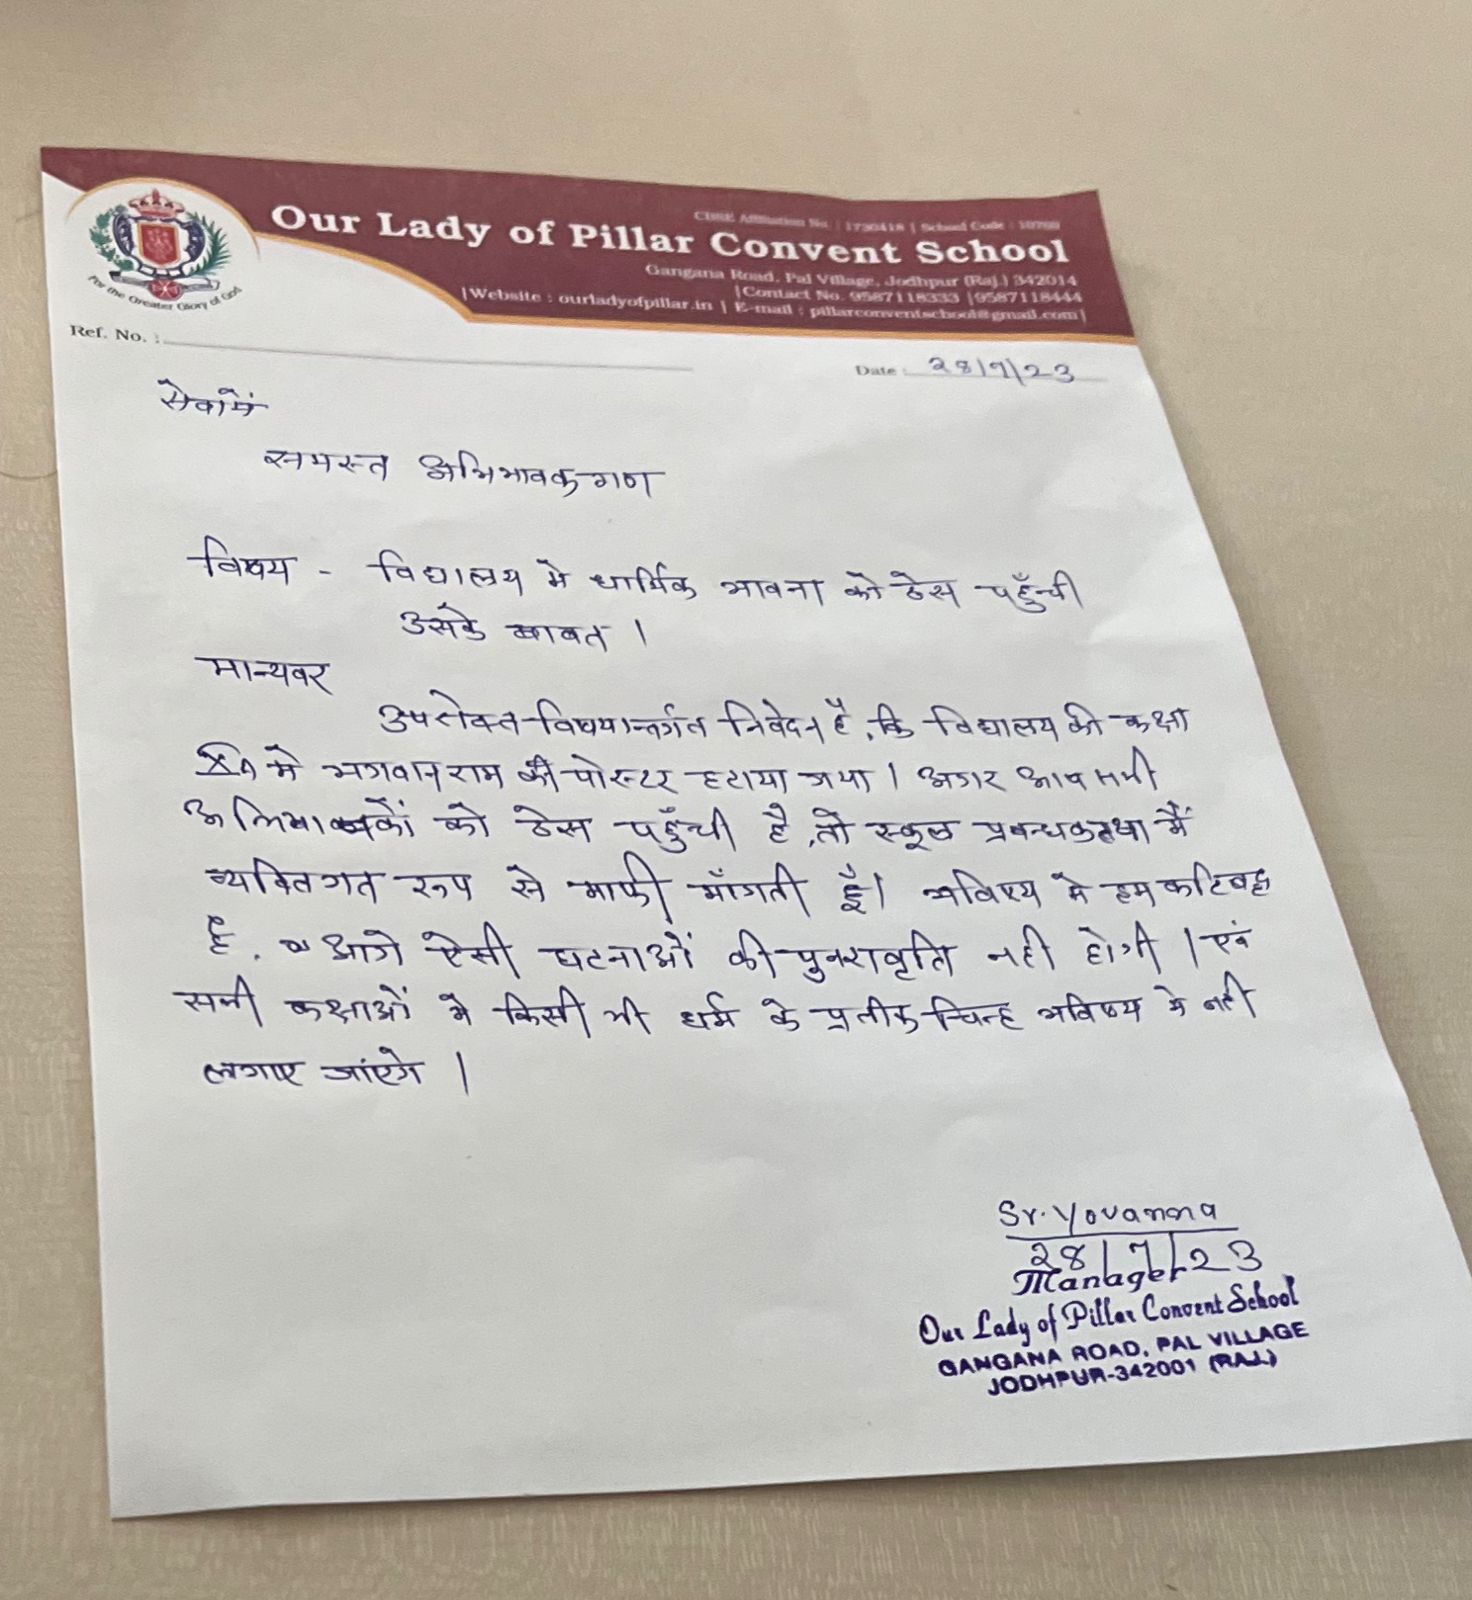 CBSE Affiliation No. : 1730418 | School Code : 10760
Our Lady of Pillar Convent School
Gangana Road, Pal Village, Jodhpur (Raj.) 342014
|Contact No. 9587118333 |9587118444
|Website : ourladyofpillar.in | E-mail : pillarconventschool@gmail.com|
For the Greater Glory of God
Ref. No. :
Date : 28/7/23
सेवामें
समस्त अभिभावकगण
विषय - विद्यालय मे धार्मिक भावना को ठेस पहुँची
उसके बाबत ।
मान्यवर
उपरोक्त विषयान्तर्गत निवेदन है, कि विद्यालय की कक्षा
में भगवान राम की पोस्टर हटाया गया । अगर आप सभी
अभिभावकों को ठेस पहुँची है, तो स्कूल प्रबन्धक तथा मैं
व्यक्तिगत रूप से माफी माँगती हूँ। भविष्य मे हम कटिबद्ध
है, आगे ऐसी घटनाओं की पुनरावृति नही होगी । एवं
सभी कक्षाओं मे किसी भी धर्म के प्रतीक चिन्ह भविष्य मे नही
लगाए जांएगे ।
Sr. Yovanna
28/7/23
Manager
Our Lady of Pillar Convent School
GANGANA ROAD, PAL VILLAGE
JODHPUR-342001 (RAJ.)